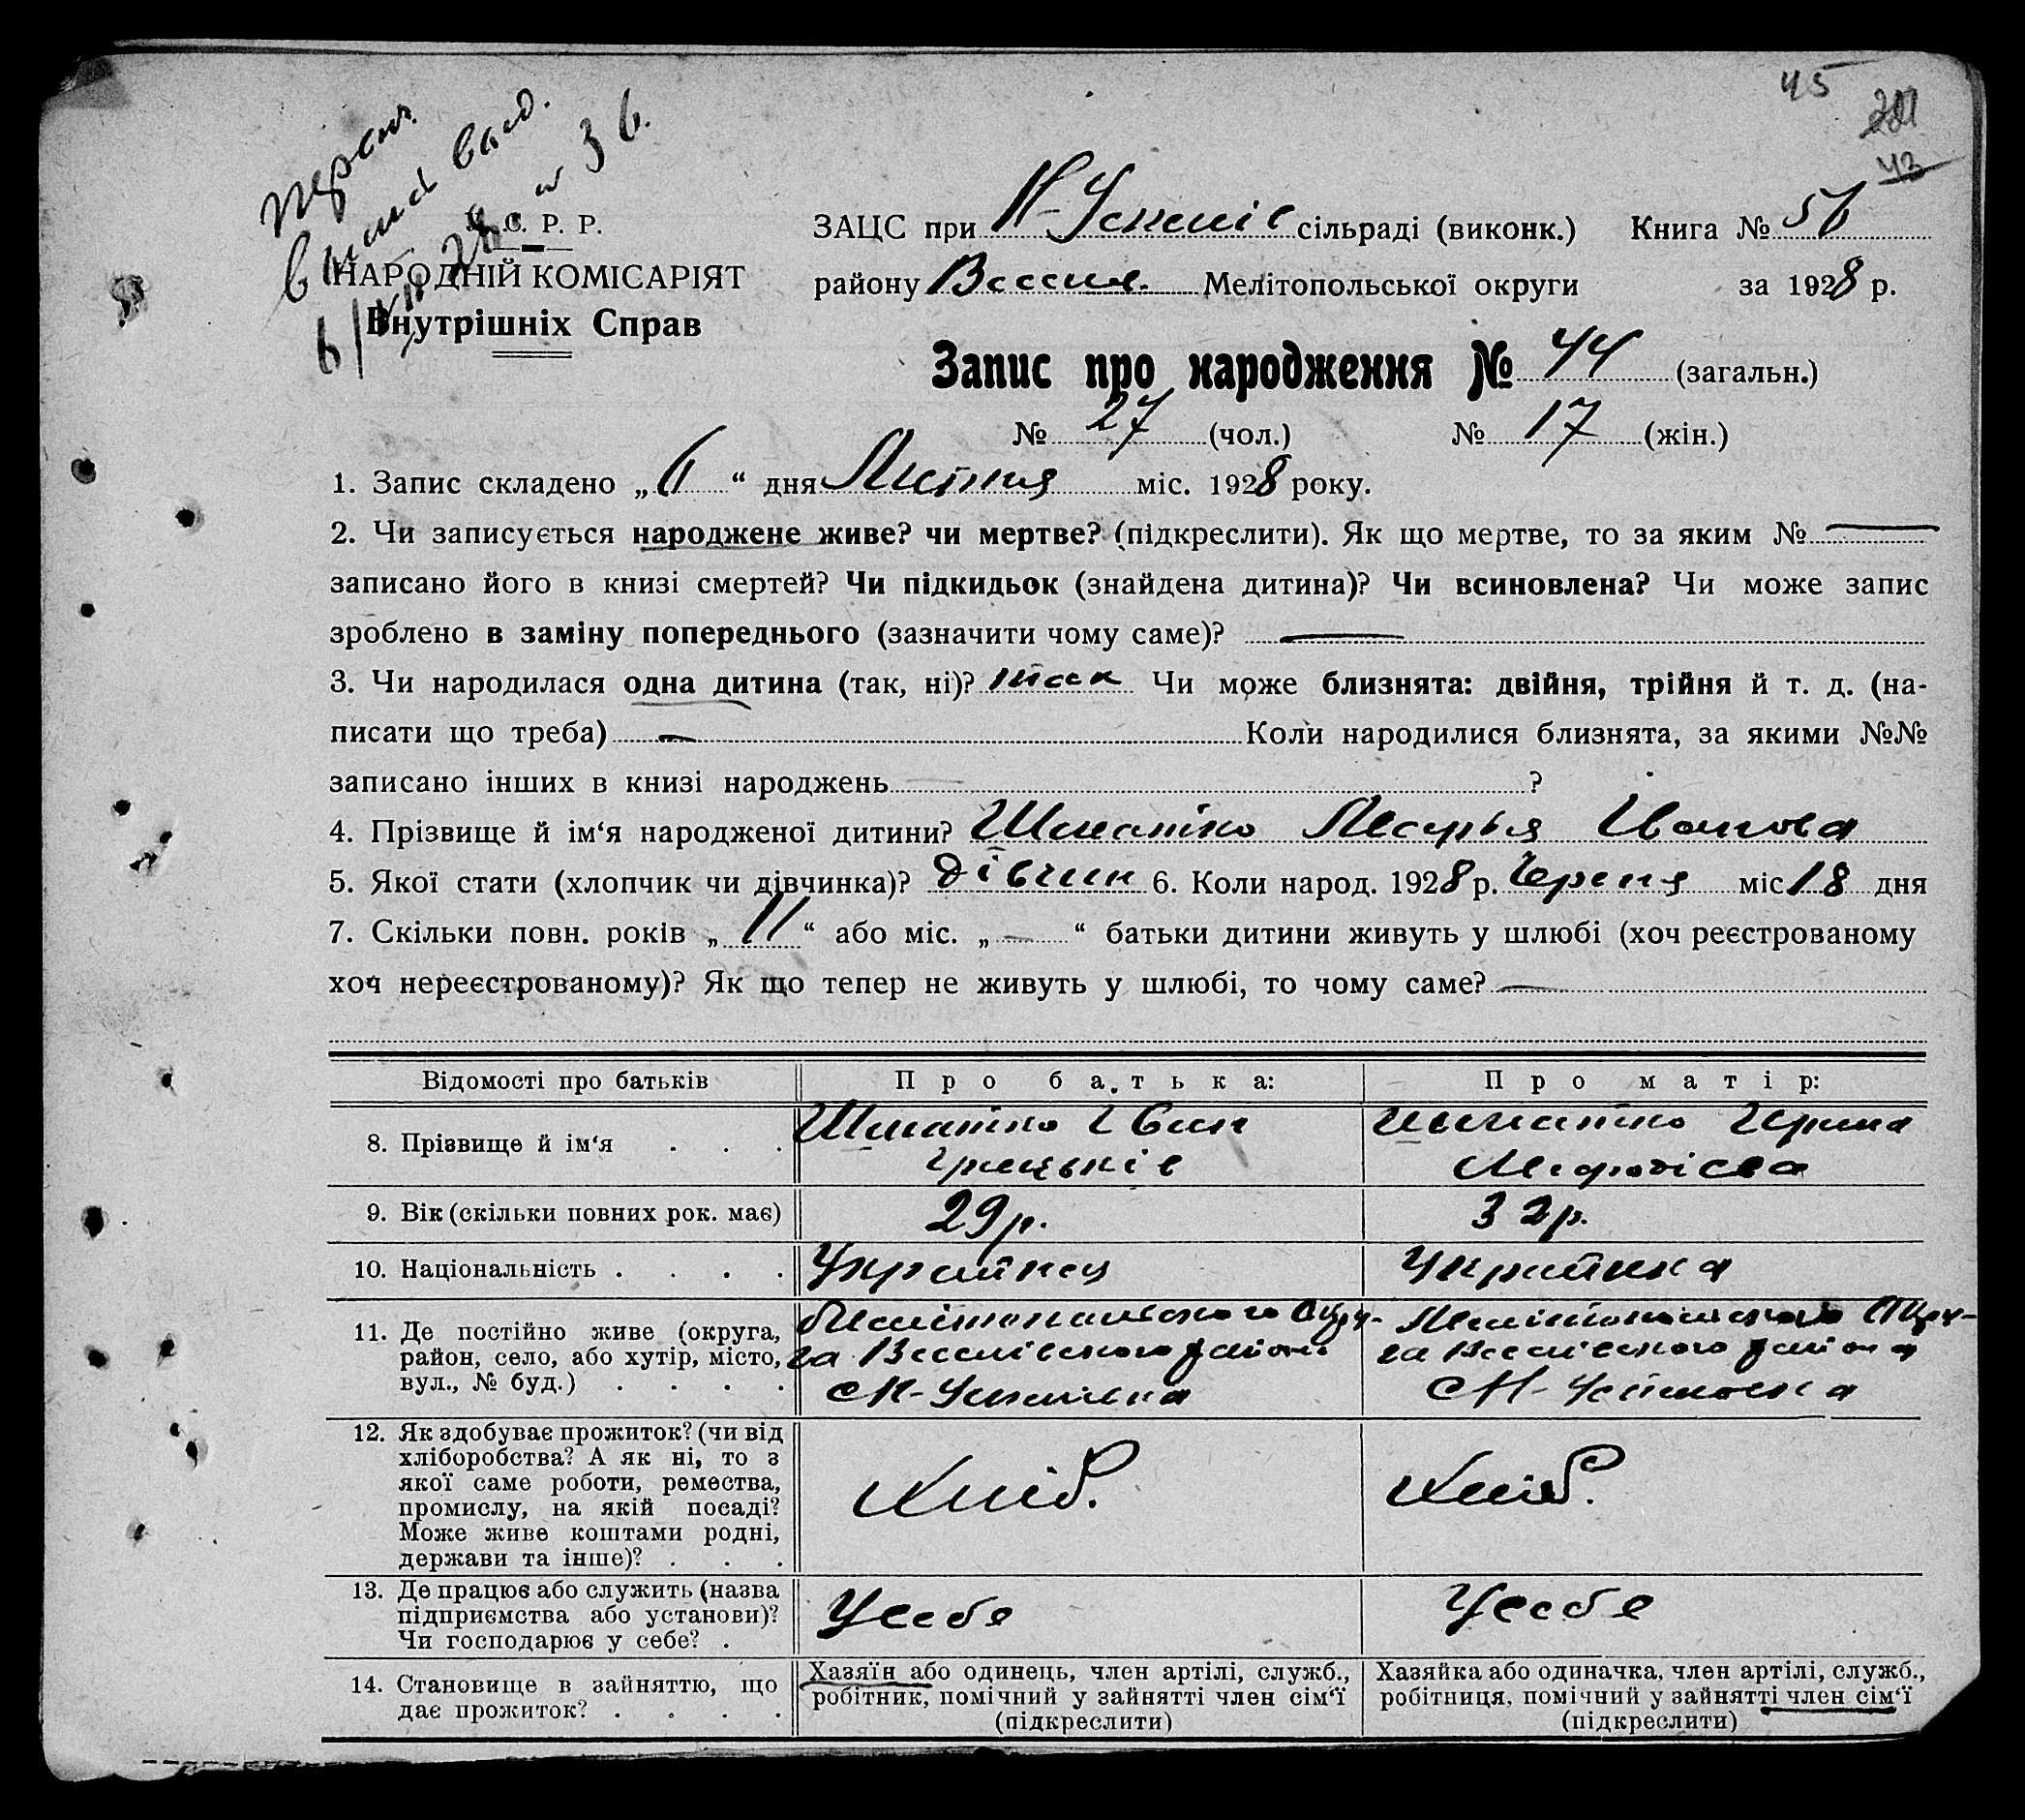 45
201
43
У. С. Р. Р.
НАРОДНІЙ КОМІСАРІЯТ
Внутрішніх Справ
ЗАЦС при Н-Успенів сільраді (виконк.) Книга № 56
району Весели. Мелітопольської округи за 1928 р.
Запис про народження № 44 (загальн.)
№ 27 (чол.) № 17 (жін.)
1. Запис складено „6“ дня Липня міс. 1928 року.
2. Чи записується народжене живе? чи мертве? (підкреслити). Як що мертве, то за яким №
записано його в книзі смертей? Чи підкидьок (знайдена дитина)? Чи всиновлена? Чи може запис
зроблено в заміну попереднього (зазначити чому саме)?
3. Чи народилася одна дитина (так, ні)? так Чи може близнята: двійня, трійня й т. д. (на-
писати що треба) Коли народилися близнята, за якими №№
записано інших в книзі народжень ?
4. Прізвище й ім‘я народженої дитини? Шматко Марья Іванова
5. Якої стати (хлопчик чи дівчинка)? дівчин 6. Коли народ. 1928 р. Червня міс 18 дня
7. Скільки повн. років „11“ або міс. „—“ батьки дитини живуть у шлюбі (хоч реєстрованому
хоч нереєстрованому)? Як що тепер не живуть у шлюбі, то чому саме?
Відомості про батьків Про батька: Про матір:
8. Прізвище й ім‘я Шматко Іван Шматко Ирина
Грицьків Мефодієва
9. Вік (скільки повних рок. має) 29 р. 32 р.
10. Національність Українец Українка
11. Де постійно живе (округа, Мелітопольського Окру- Мелітопольского Окру-
район, село, або хутір, місто, га Веселівского района га Веселівского района
вул., № буд.) с Н-Успенівка с Н-Успеновка
12. Як здобуває прожиток? (чи від
хліборобства? А як ні, то з
якої саме роботи, ремества, Хліб. Хліб.
промислу, на якій посаді?
Може живе коштами родні,
держави та інше)?
13. Де працює або служить (назва
підприємства або установи)? У себе У себе
Чи господарює у себе?
14. Становище в зайняттю, що Хазяїн або одинець, член артілі, служб., Хазяйка або одиначка, член артілі, служб.,
дає прожиток? робітник, помічний у зайнятті член сім‘ї робітниця, помічний у зайнятті член сім‘ї
(підкреслити) (підкреслити)